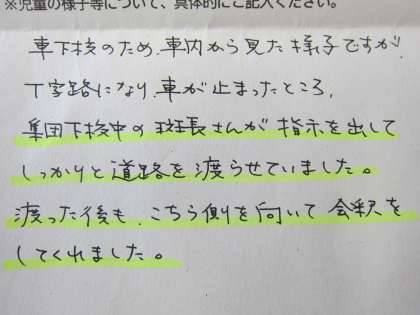 ※児童の様子等について、具体的にご記入ください。
車下校のため、車内から見た様子ですが、
丁字路になり、車が止まったところ、
集団下校中の班長さんが指示を出して
しっかりと道路を渡らせていました。
渡った後も、こちら側を向いて会釈を
してくれました。